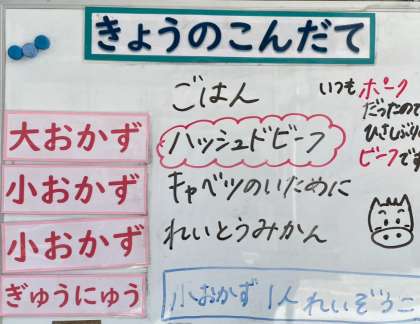 きょうのこんだて
ごはん
いつもポーク
だったので
ひさしぶりに
ビーフです
大おかず ハッシュドビーフ
小おかず キャベツのいために
小おかず れいとうみかん
ぎゅうにゅう 小おかず 1人
れいぞうこ